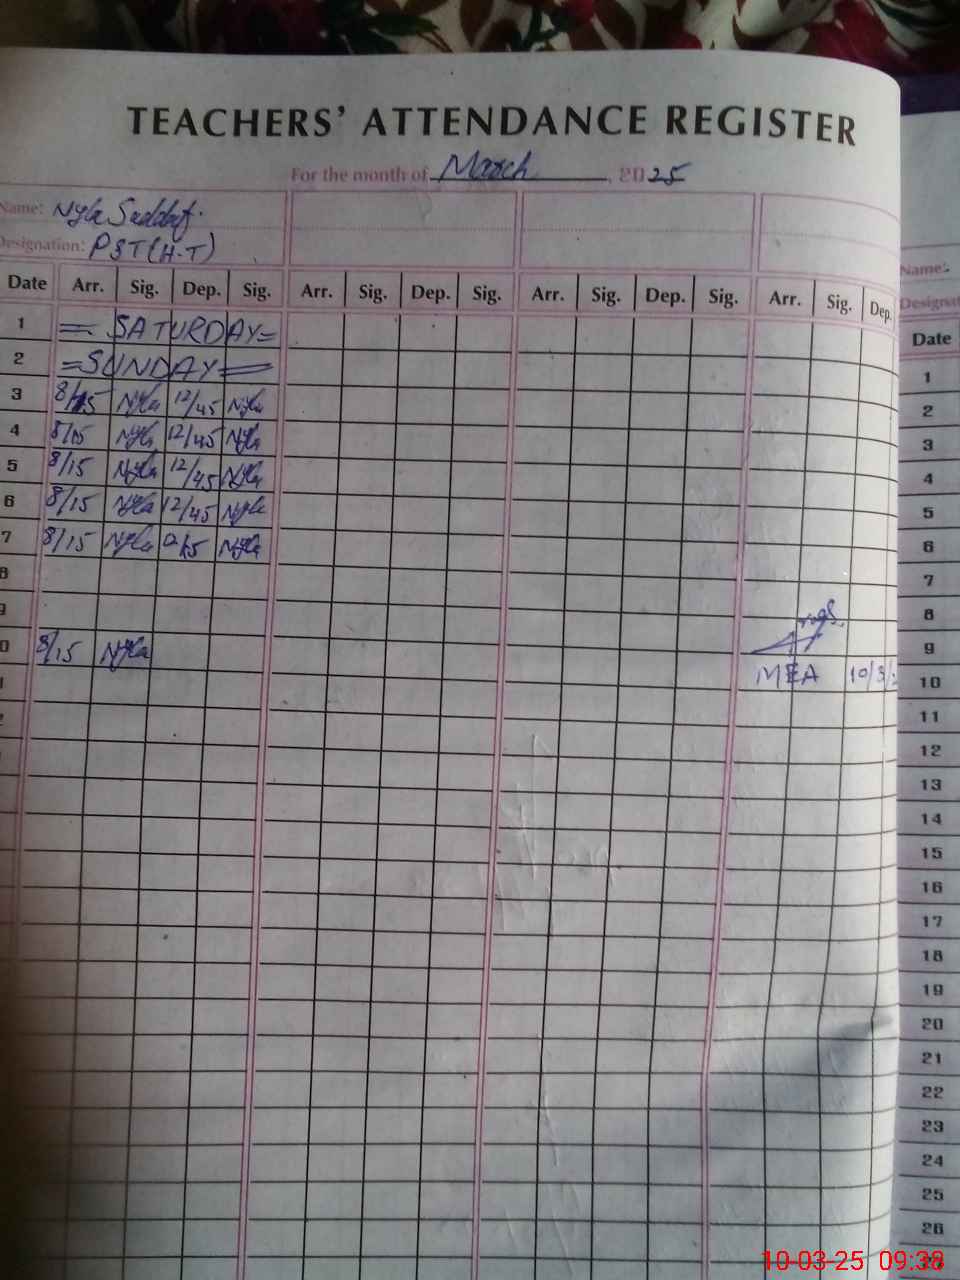 TEACHERS' ATTENDANCE REGISTER
For the month of March, 2025
Name: Nyla Saddaf.
Designation: PST (H-T)
Date Arr. Sig. Dep. Sig. Arr. Sig. Dep. Sig. Arr. Sig. Dep. Sig. Arr. Sig. Dep.
1 = SATURDAY =
2 = SUNDAY =
3 8/15 Nyla 12/45 Nyla
4 8/15 Nyla 12/45 Nyla
5 8/15 Nyla 12/45 Nyla
6 8/15 Nyla 12/45 Nyla
7 8/15 Nyla Nyla
8
9
0 8/15 Nyla
MEA 10/3/2
Name:
Designat
Date
1
2
3
4
5
6
7
8
9
10
11
12
13
14
15
16
17
18
19
20
21
22
23
24
25
26
10-03-25 09:38